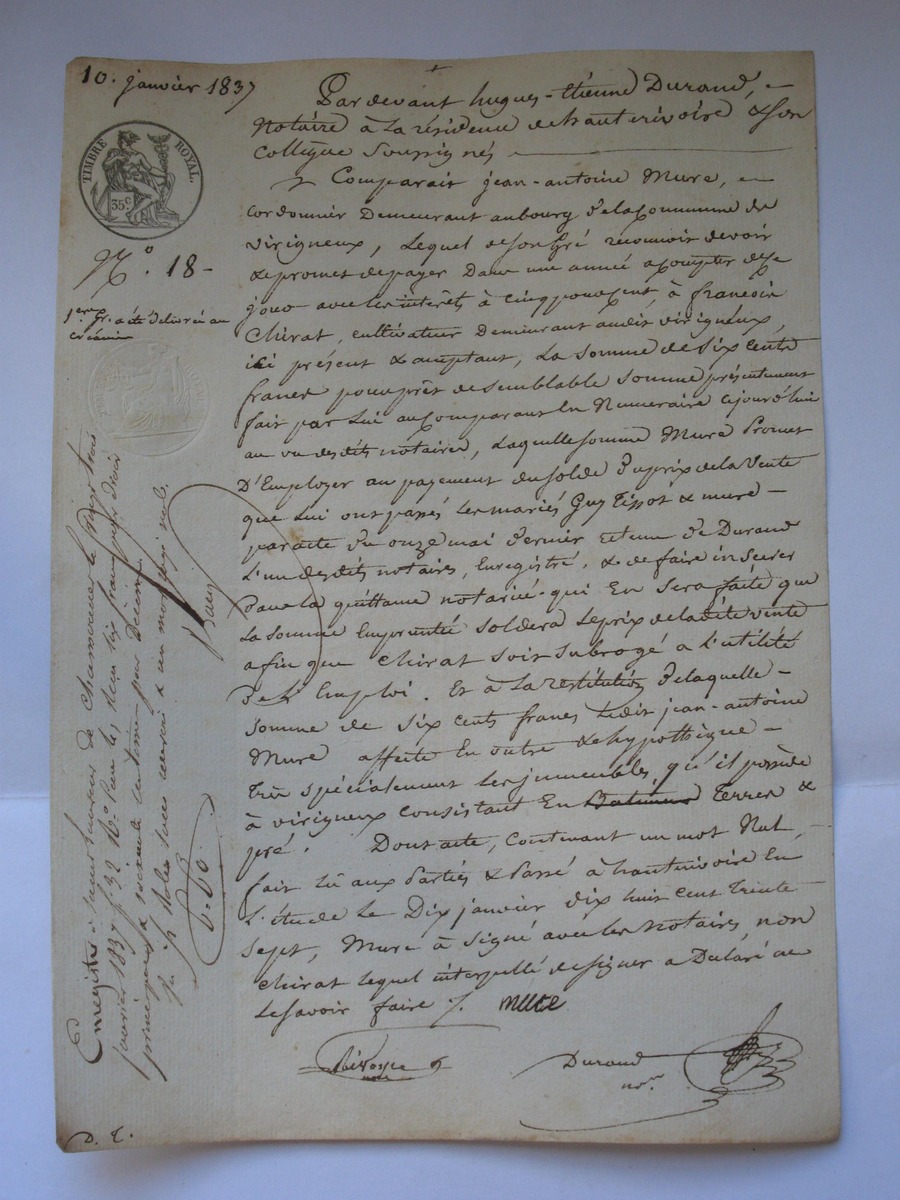 10. janvier 1837
TIMBRE ROYAL.
35c
N.o 18 -
1ere Gr. a été délivrée au
créancier
Par devant hugues-étienne Durand,
Notaire à la résidence de hauterivoire & son
Collègue Soussignés
Comparait jean-antoine Mure,
cordonnier Demeurant au bourg de la Commune de
virigneux, Lequel de son Gré reconnoit devoir
& promet de payer Dans une année a compter de ce
jour avec les interêts à cinq pour cent, à francois
Chirat, cultivateur Demeurant audit virigneux,
ici présent & acceptant, La somme de six cents
francs pour prêt de semblable somme présentement
fait par Lui au Comparant En Numeraire cejourd'hui
au vu desdits notaires, Laquelle somme Mure Promet
D'Employer au payement du solde du prix de la Vente
que Lui ont passés Les mariés Guy Tissot & mure
par acte du onze mai dernier reçu me Durand
L'un desdits notaires, Enregistré, & de faire inserer
Dans la quittance notariée qui En sera faite que
La somme Empruntée soldera le prix de la dite vente
afin que Chirat soit subrogé a L'utilité
de L'Emploi. Et à La restitution de laquelle
somme de six cents francs Ledit jean-antoine
Mure affecte En outre & hypothèque
Très spécialement les immeubles qu'il possède
à virigneux consistant En Batiments Terres &
pré. Dont acte, Contenant un mot Nul,
fait lu aux Parties & Passé à hauterivoire En
L'étude Le Dix janvier dix huit cent Trente
sept, Mure à signé avec les notaires, non
Chirat lequel interpellé de signer a Déclaré ne
Le savoir faire ./. mure
Durand
nore
Enregistré à Saint Laurent de Chamousset le vingt trois
janvier 1837 f. 32 Ro. Reçu les deux six francs pour droit
principal & soixante centimes pour décime
D. E.